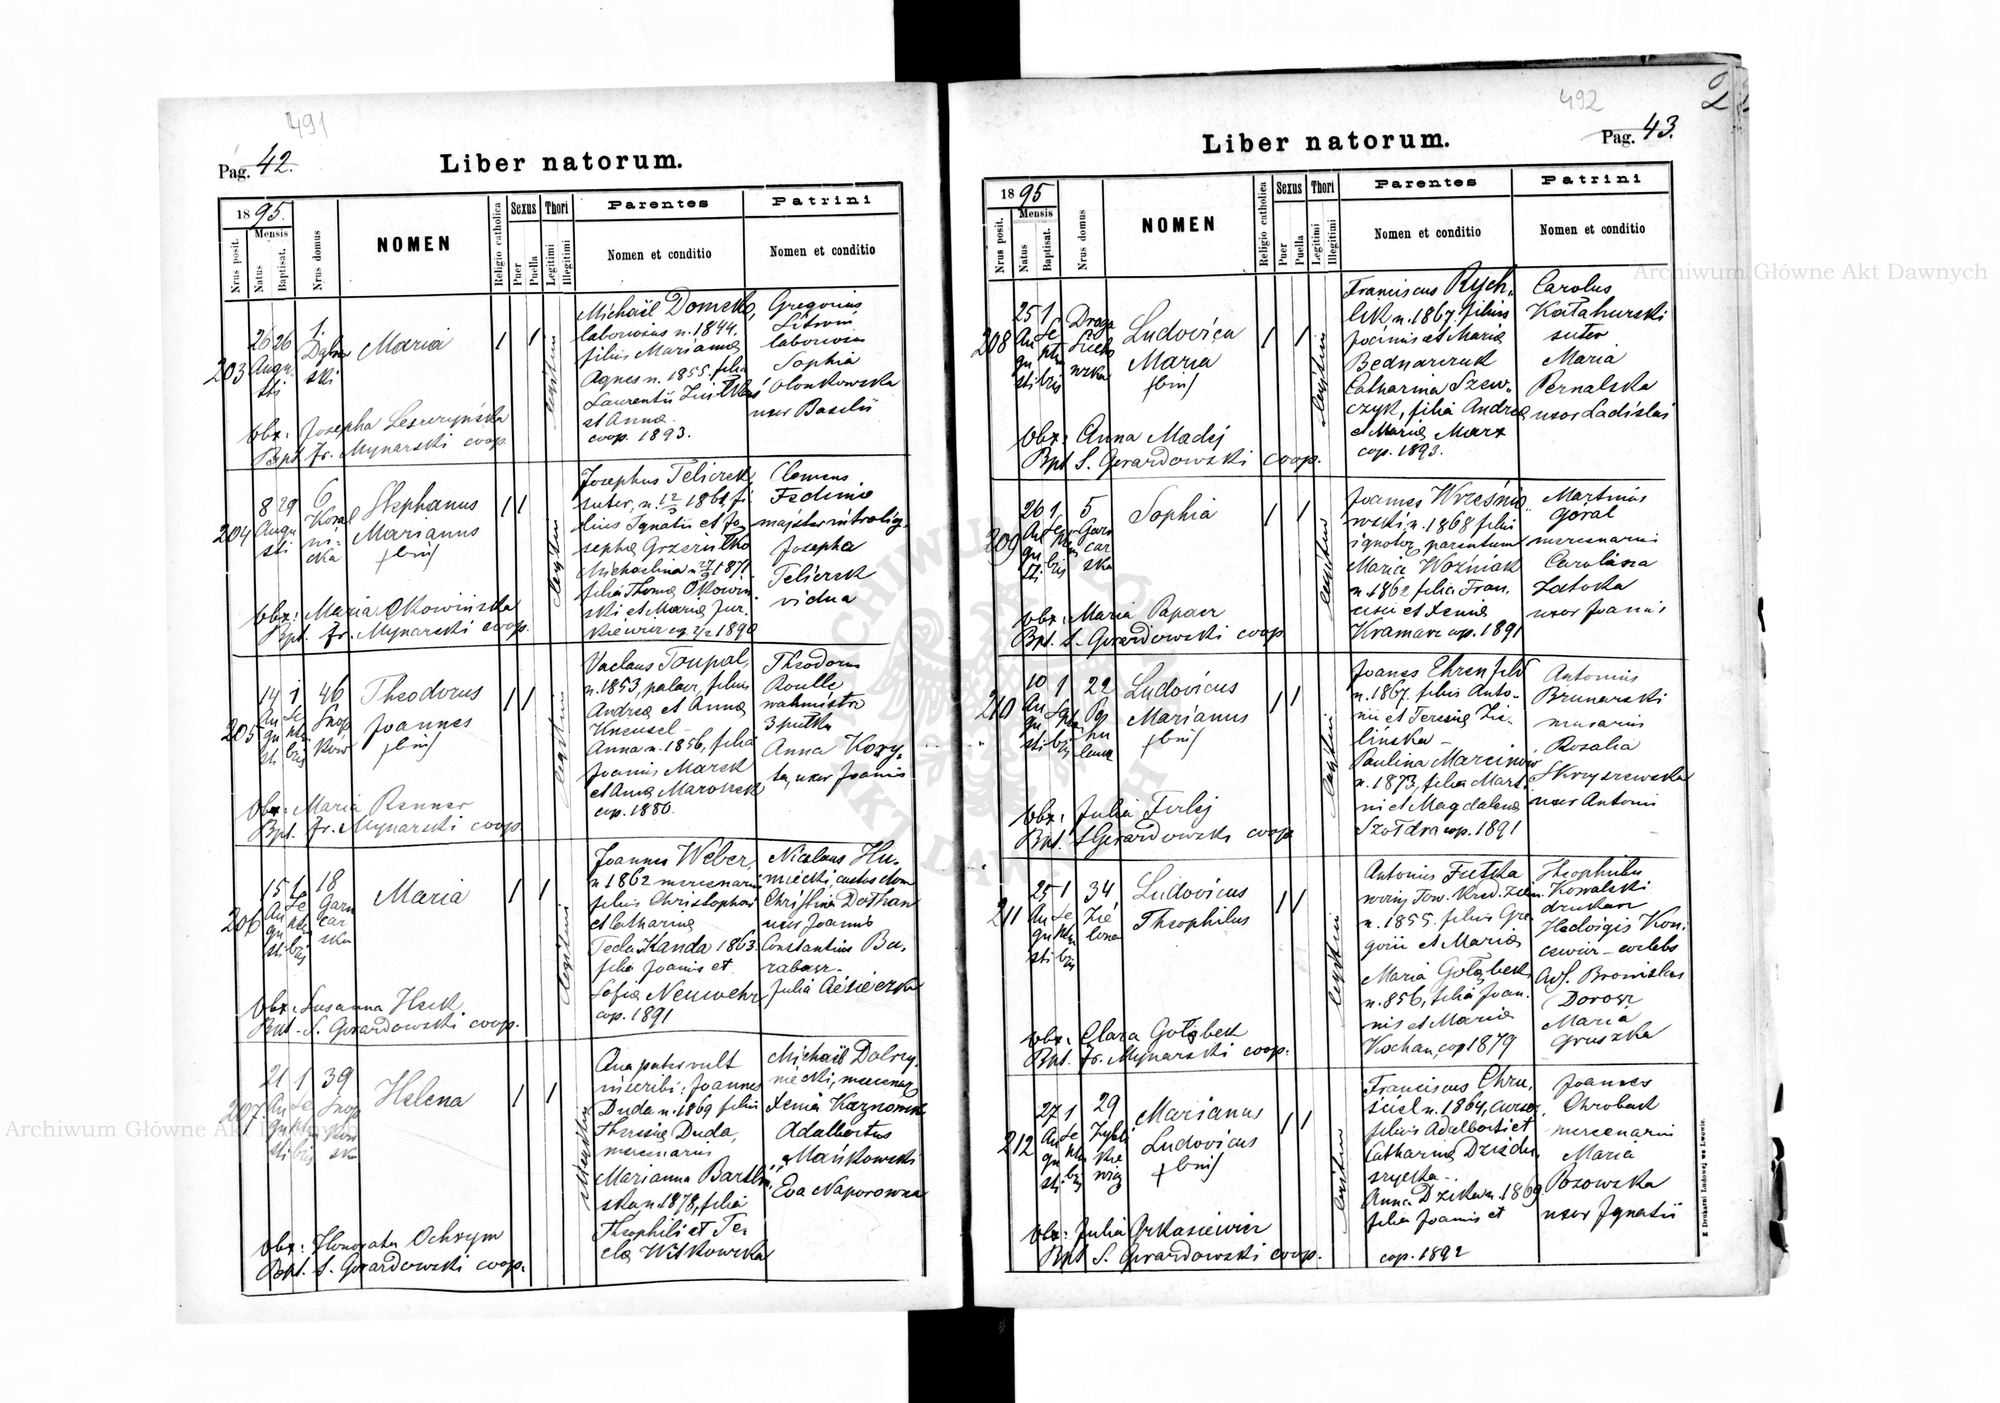 491
Pag. 42.
Liber natorum.
1895.
Mensis
Nrus posit.
Natus
Baptisat.
Nrus domus
NOMEN
Religio catholica
Sexus
Puer
Puella
Thori
Legitimi
Illegitimi
Parentes
Nomen et conditio
Patrini
Nomen et conditio
203
26 26
Augu
sti
1.
ski
Maria
Michaël Domcko,
laborius n. 1844.
filius Marianna
Agnes n. 1855. filia
Laurentii
et Anna
cop. 1893.
Gregorius
Litwin
laborius
Sophia
uxor Basilii
obx: Josepha Leszczyńska
Bpt. Fr. Mynarski coop.
204
8 29
Augu
sti
6
Koral
ni-
cka
Stephanus
Marianus
(bin)
Josephus Telicrek
suter, n. 1861, fi
lius Ignatii et Jo
sepha
Michaelina n. 1871
filia Thoma Okowin
ski et Maria Jur.
kiewicz 1890
Clemens
Fedinia
majster introlig.
Josepha
Telicrek
vidua
obx: Maria Okowińska
Bpt. Fr. Mynarski coop.
205
14 1
Au Se
gu ptem
sti bris
46
Snop
kow
Theodorus
Joannes
(bin)
Vaclaus Toupal,
n. 1853, palacz, filius
Andrea et Anna
Kneusel
Anna n. 1856, filia
Joannis Marek
et Anna Maroszek
cop. 1880.
Theodorus
Roulle
wachmistrz
3 pułku
Anna Kory,
ta, uxor Joannis
obx: Maria Renner
Bpt. Fr. Mynarski coop.
206
15 1
Au Se
gu ptem
sti bris
18
Garn
car
ska
Maria
Joannes Weber,
n. 1862 mercenarius
filius Christophori
et Catharina
Tecla Kanda 1863.
filia Joannis et
Sofia Neuwehr
cop. 1891
Nicolaus Hu-
miecki, custos dom
Christina Dothan
uxor Joannis
Constantius Ba-
rabasz.
Julia
obx: Susanna Heck
Bpt. S. Gerardowski coop.
207.
21 1
Au Se
gu ptem
sti bris
39
Snop
kow
ska
Helena
Qua pater vult
inscribi: Joannes
Duda n. 1869 filius
Theresia Duda,
mercenarius
Marianna Bartlin,
ska n. 1878, filia
Theophili et Te-
cla Witkowska
Michaël Dobrzy,
niecki, mercenar
Xenia
Adalbertus
Mańkowski
Eva Naporowna
obx: Honorata Ochrym
Bpt. S. Gerardowski coop.
492
Liber natorum.
Pag. 43.
2
1895
Mensis
Nrus posit.
Natus
Baptisat.
Nrus domus
NOMEN
Religio catholica
Sexus
Puer
Puella
Thori
Legitimi
Illegitimi
Parentes
Nomen et conditio
Patrini
Nomen et conditio
208
25 1
Au Se
gu ptem
sti bris
Droga
Ludovica
Maria
(bin)
Franciscus Rych,
lik, n. 1867. filius
et Maria
Bednarczuk
Catharina Szew-
czyk, filia Andrea
et Maria Marx
cop. 1893.
Carolus
Katahurski
suter
Maria
Pernalska
uxor Ladislai
obx: Anna Madej
Bpt S. Gerardowski coop.
209
26 1
Au Se
gu ptem
sti bris
5
Garn
car
ska
Sophia
Joannes Wrześnio
wski, n. 1868 filius
ignotor. parentum
Maria Woźniak
n. 1862 filia Fran.
cisci et Xenia
Kramarz cop. 1891
Martinus
Goral
mercenarius
Carolina
Latocka
uxor Joannis
obx: Maria Papacz
Bpt. S. Gerardowski coop
210
10 1
Au Septem
gu
sti bris
22
Po
hu
lanka
Ludovicus
Marianus
(bin)
Joannes Ehrenfeld
n. 1867. filius Anto-
nii et Teresia Zie-
lińska
Paulina Marcinów
n. 1873, filia Marti
ni et Magdalena
Szołdra cop. 1891
Antonius
Brunarski
murarius
Rosalia
Skrzyszewska
uxor Antonii
obx: Julia Ferlej
Bpt. S Gerardowski coop
211
25 1
Au Se
gu ptem
sti bris
34
Zie
lona
Ludovicus
Theophilus
Antonius Futska
woźny Tow. Kred. ziem.
n. 1855. filius Gre
gorii et Maria
Maria Gołąbek
n. 856, filia Joan.
nis et Maria
Kochan, cop 1879
Theophilus
Kowalski
drukarz
Hedvigis Kon.
cewicz - coelebs
Ass. Bronislaus
Dorosz
Maria
Gruszka
obx: Clara Gołąbek
Bpt. Fr. Mynarski coop.
212
27 1
Au Se
gu ptem
sti bris
29
Zybli
kie
wicz
Marianus
Ludovicus
(bin)
Franciscus Chru.
ściel n. 1864, cursor.
filius Adalberti et
Catharina Dziedu,
szycka
Anna Dzika n. 1869
filia Joannis et
cop. 1892
Joannes
Chrobak
mercenarius
Maria
Pozowska
uxor Ignatii
obx: Julia Arkasiewicz
Bpt S. Gerardowski coop.
Z Drukarni Ludowej we Lwowie.
Archiwum Główne Akt Dawnych
Archiwum Główne Akt Dawnych
ARCHIWUM GŁÓWNE AKT DAWNYCH